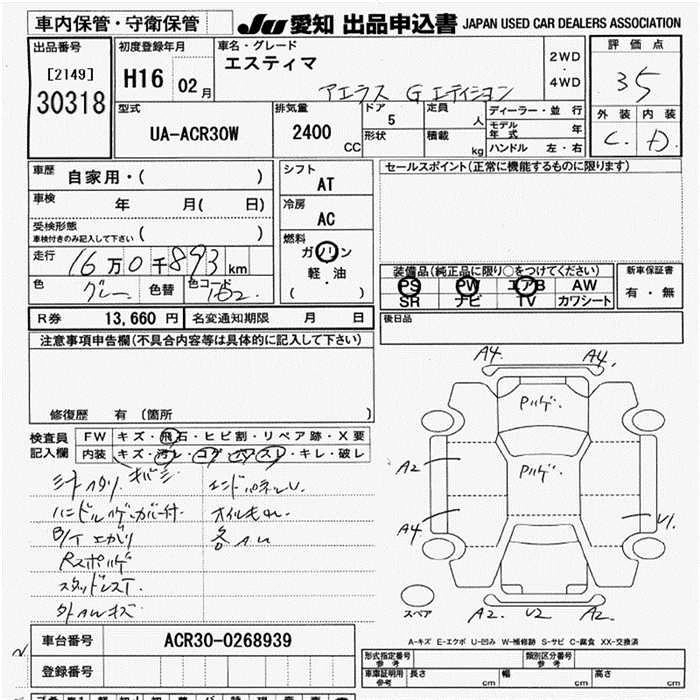 車内保管・守衛保管 JU 愛知 出品申込書 JAPAN USED CAR DEALERS ASSOCIATION
出品番号 [2149] 30318
初度登録年月 H16 02月
車名・グレード エスティマ
アエラス G エディション
2WD・4WD
評価点 35
外装 内装
C. D.
型式 UA-ACR30W
排気量 2400 CC
ドア 5
形状
定員 人
積載 kg
ディーラー・並行
モデル年式 年
ハンドル 左・右
車歴 自家用・( )
車検 年 月( 日)
受検形態
車検付きのみ記入して下さい ( )
走行 16万0千893km
色 グレー 色替 色コード 1B2
シフト AT
冷房 AC
燃料 ガソリン
軽・油
( )
セールスポイント(正常に機能するものに限ります)
装備品(純正品に限り○をつけてください)
PS PW エアB AW
SR ナビ TV カワシート
新車保証書
有・無
R券 13,660円 名変通知期限 月 日
後日品
注意事項申告欄(不具合内容等は具体的に記入して下さい)
修復歴 有(箇所 )
検査員記入欄
FW キズ・飛石・ヒビ割・リペア跡・X要
内装 キズ・汚レ・コゲ・ハズレ・キレ・破レ
ハンドルハゲ・カバー付
エンドパネルU.
Rスポハゲ
スタッドレスT.
A4. A4.
Pハゲ.
Pハゲ.
A2
A4
U1.
スペア
A2. U2 A2.
A-キズ E-エクボ U-凹み W-補修跡 S-サビ C-腐食 XX-交換済
車台番号 ACR30-0268939
登録番号
形式指定番号 参考
類別区分番号 参考
車庫証明用 参考
長さ cm 幅 cm 高さ cm